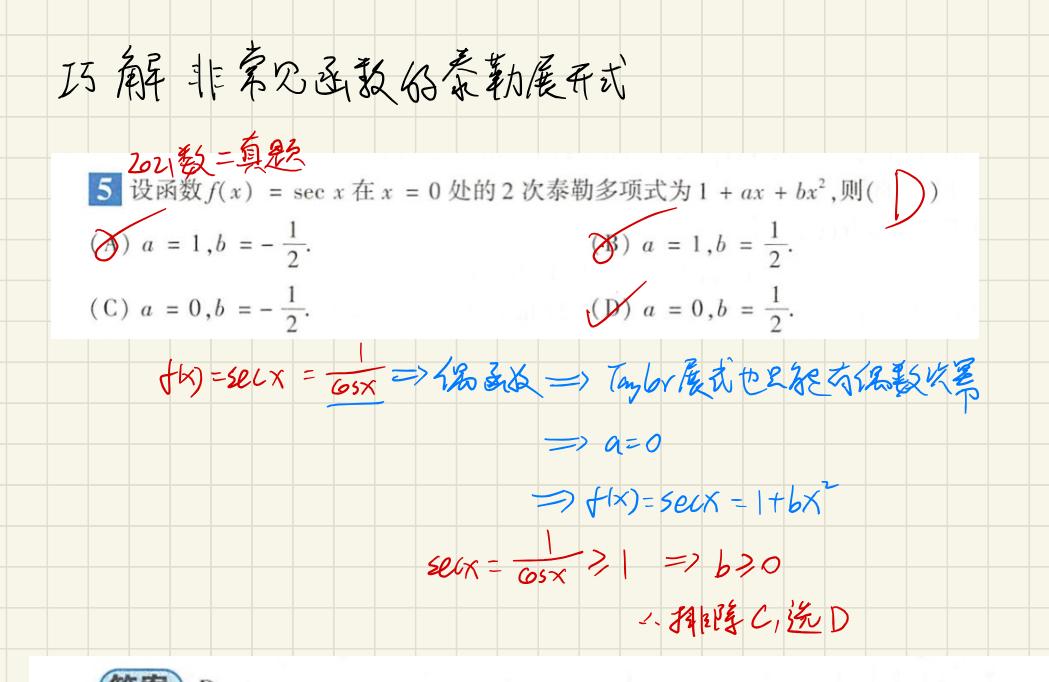 巧解非常见函数的泰勒展开式
2021数二真题
5 设函数 f(x) = sec x 在 x = 0 处的 2 次泰勒多项式为 1 + ax + bx², 则( D )
(A) a = 1, b = -1/2.
(B) a = 1, b = 1/2.
(C) a = 0, b = -1/2.
(D) a = 0, b = 1/2.
f(x)=secx = 1/cosx ⇒ 偶函数 ⇒ Taylor展式也只能有偶数次幂
⇒ a=0
⇒ f(x)=secx = 1+bx²
secx = 1/cosx ≥ 1 ⇒ b≥0
∴排除C,选D